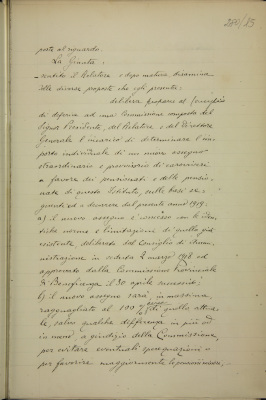 200/85
poste al riguardo.
La Giunta:
- sentito il Relatore e dopo matura disamina
delle diverse proposte che egli presenta;
delibera proporre al Consiglio
di deferire ad una Commissione composta del
Signor Presidente, del Relatore e del Direttore
Generale l'incarico di determinare l'im=
porto individuale di un nuovo assegno
straordinario e provvisorio di caroviveri
a favore dei pensionati e delle pensio=
nate di questo Istituto, sulle basi se=
guenti ed a decorrere dal presente anno 1919:
a) il nuovo assegno è concesso con le iden=
tiche norme e limitazioni di quello già
esistente, deliberato dal Consiglio di Am=
ministrazione in seduta 2 marzo 1918 ed
approvato dalla Commissione Provinciale
di Beneficenza il 30 aprile successivo;
b) il nuovo assegno sarà, in massima,
ragguagliato al 100 % di quello attua=
le, salvo qualche differenza in più od
in meno, a giudizio della Commissione,
per evitare eventuali sperequazioni o
per favorire maggiormente le